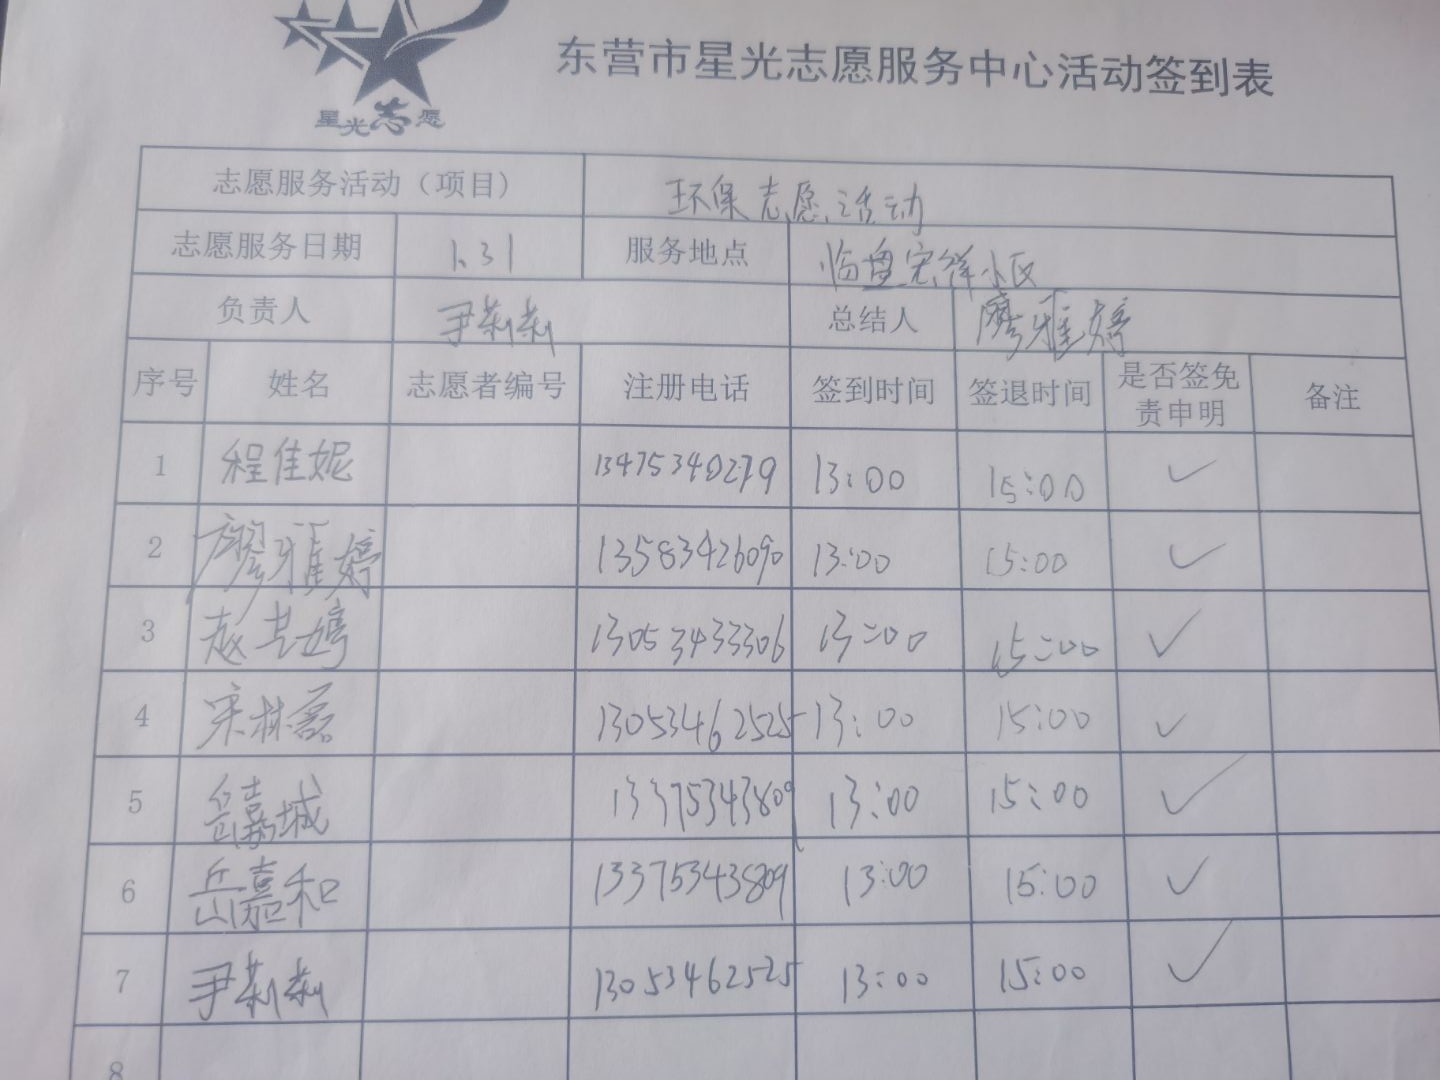 星光志愿
东营市星光志愿服务中心活动签到表
志愿服务活动（项目） 环保志愿活动
志愿服务日期 1.31 服务地点 临盘宏祥小区
负责人 尹莉莉 总结人 廖雅婷
序号 姓名 志愿者编号 注册电话 签到时间 签退时间 是否签免责申明 备注
1 程佳妮 13475340279 13:00 15:00 ✓
2 廖雅婷 13583426090 13:00 15:00 ✓
3 赵艺婷 13053433306 13:00 15:00 ✓
4 宋林磊 13053462525 13:00 15:00 ✓
5 岳嘉城 13375343809 13:00 15:00 ✓
6 岳嘉和 13375343809 13:00 15:00 ✓
7 尹莉莉 13053462525 13:00 15:00 ✓
8